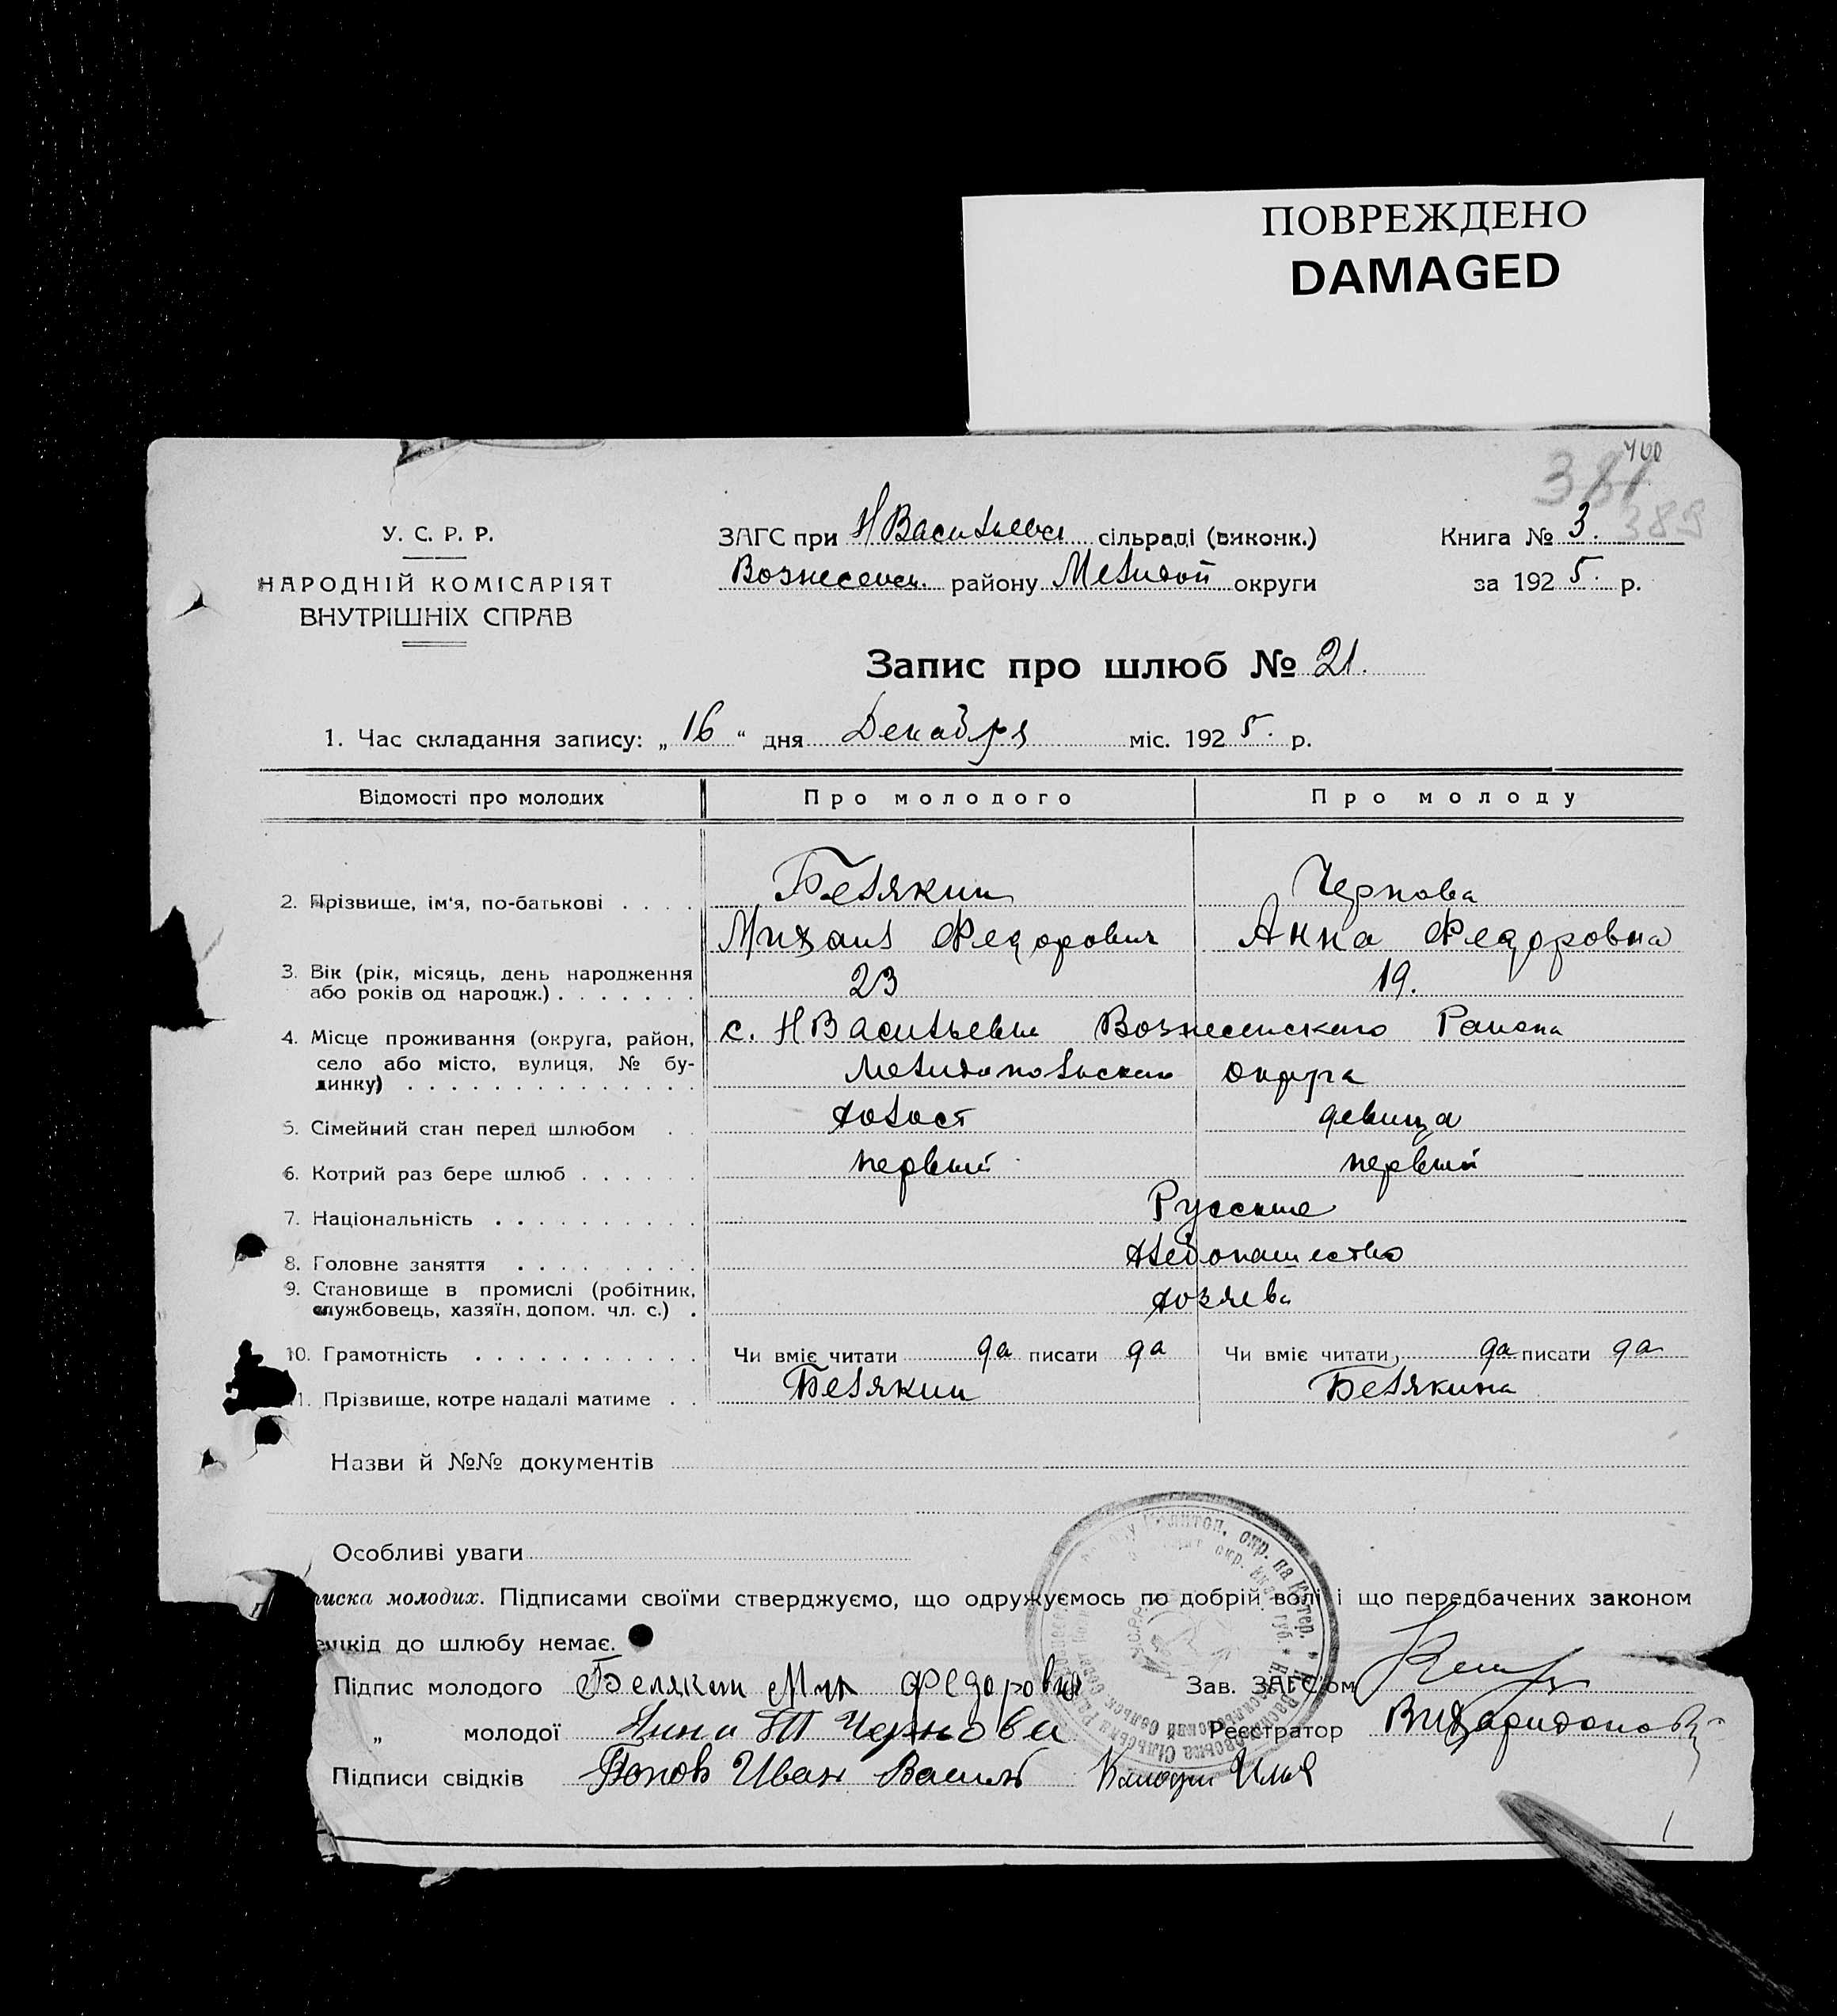 ПОВРЕЖДЕНО
DAMAGED
400
381
389
У. С. Р. Р.
НАРОДНІЙ КОМІСАРІЯТ
ВНУТРІШНІХ СПРАВ
ЗАГС при Н Васильевс сільраді (виконк.)
Вознесенск. району Мелитоп округи
Книга № 3.
за 1925. р.
Запис про шлюб № 21.
1. Час складання запису: „16“ дня Декабря міс. 1925. р.
Відомості про молодих Про молодого Про молоду
2. Прізвище, ім'я, по-батькові . . . . Белякин Чернова
Михаил Федорович Анна Федоровна
3. Вік (рік, місяць, день народження 23 19.
або років од народж.) . . . . . . .
4. Місце проживання (округа, район, с. Н Васильевке Вознесенского Района
село або місто, вулиця, № бу-
динку) . . . . . . . . . . . . . . Мелитопольского округа
5. Сімейний стан перед шлюбом . . холост девица
6. Котрий раз бере шлюб . . . . . . первый первый
7. Національність . . . . . . . . . . Русские
8. Головне заняття . . . . . . . . . Хлебопашество
9. Становище в промислі (робітник,
службовець, хазяїн, допом. чл. с.) . хозяева
10. Грамотність . . . . . . . . . . . Чи вміє читати да писати да Чи вміє читати, да писати да
1. Прізвище, котре надалі матиме . . Белякин Белякина
Назви й №№ документів
Особливі уваги
писка молодих. Підписами своїми стверджуємо, що одружуємось по добрій волі і що передбачених законом
ешкід до шлюбу немає.
Підпис молодого Белякин Мих Федорович Зав. ЗАГС'ом
„ молодої Анна Чернова Реєстратор В Харитонов
Підписи свідків Попов Иван Василь Илья